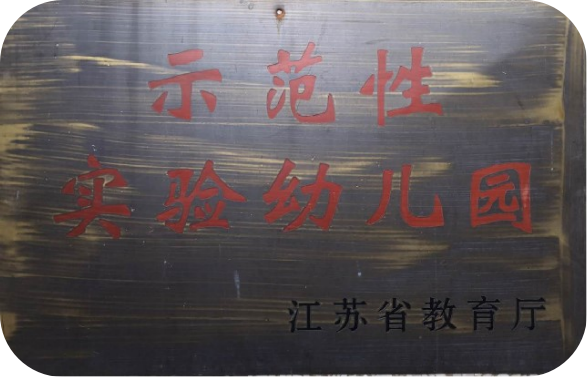 示范性
实验幼儿园
江苏省教育厅